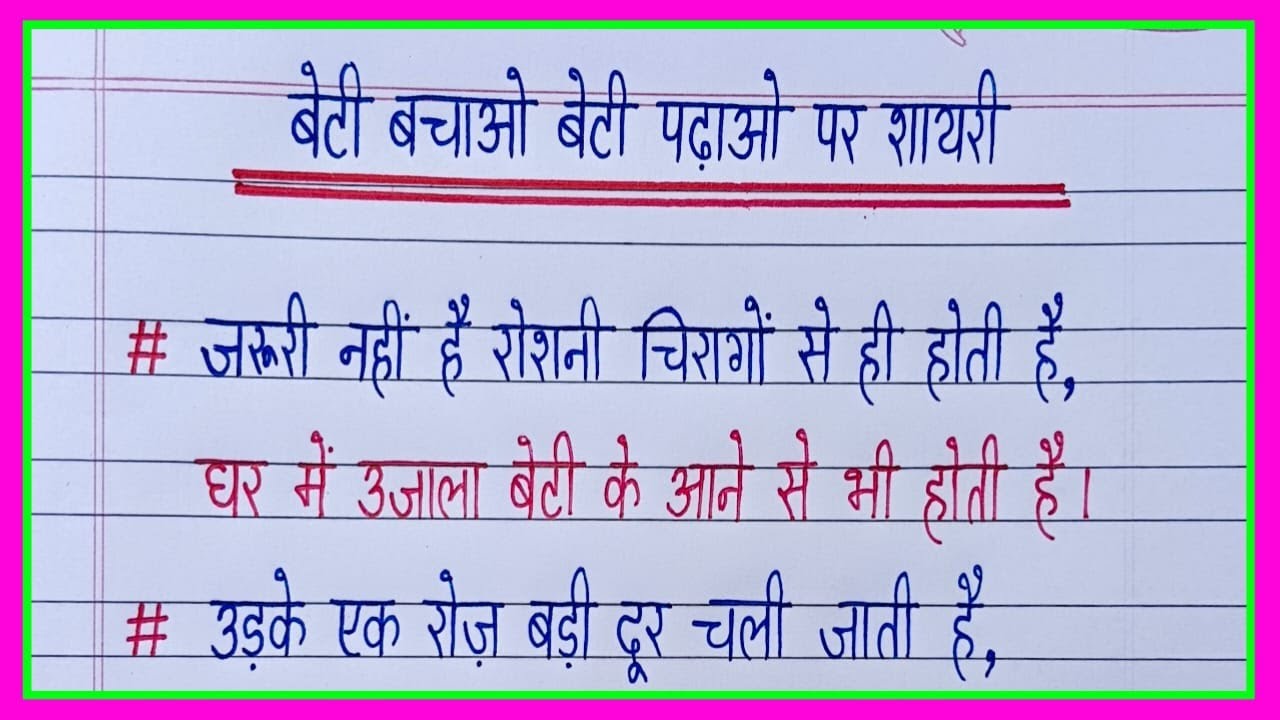 बेटी बचाओ बेटी पढ़ाओ पर शायरी
# जरूरी नहीं है रोशनी चिरागों से ही होती है,
घर में उजाला बेटी के आने से भी होती है।
# उड़के एक रोज़ बड़ी दूर चली जाती है,